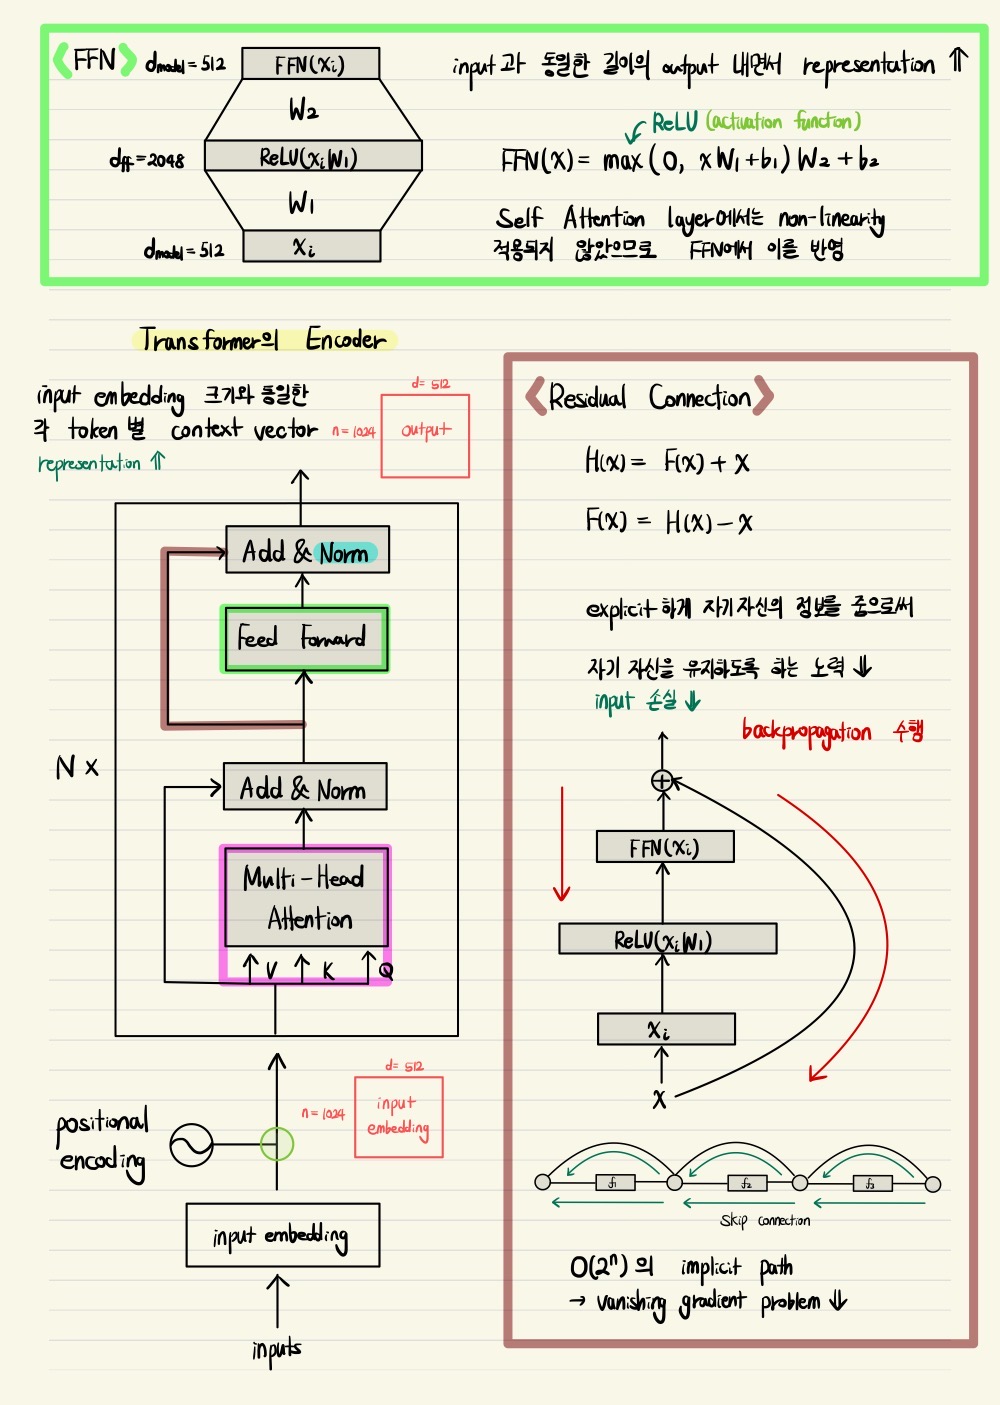 <FFN>
d_model = 512
FFN(xᵢ)
W₂
d_ff = 2048
ReLU(xᵢW₁)
W₁
d_model = 512
xᵢ
input과 동일한 길이의 output 내면서 representation ⇑
ReLU (activation function)
FFN(x) = max(0, xW₁+b₁)W₂+b₂
Self Attention layer에서는 non-linearity
적용되지 않았으므로 FFN에서 이를 반영
Transformer의 Encoder
input embedding 크기와 동일한
각 token 별 context vector
representation ⇑
d = 512
n = 1024
output
Add & Norm
Feed Forward
N x
Add & Norm
Multi-Head
Attention
V K Q
d = 512
n = 1024
input
embedding
positional
encoding
input embedding
inputs
<Residual Connection>
H(x) = F(x) + x
F(x) = H(x) - x
explicit하게 자기 자신의 정보를 줌으로써
자기 자신을 유지하도록 하는 노력 ⇓
input 손실 ⇓
backpropagation 수행
+
FFN(xᵢ)
ReLU(xᵢW₁)
xᵢ
x
f₁ f₂ f₃
skip connection
O(2ⁿ)의 implicit path
→ vanishing gradient problem ⇓